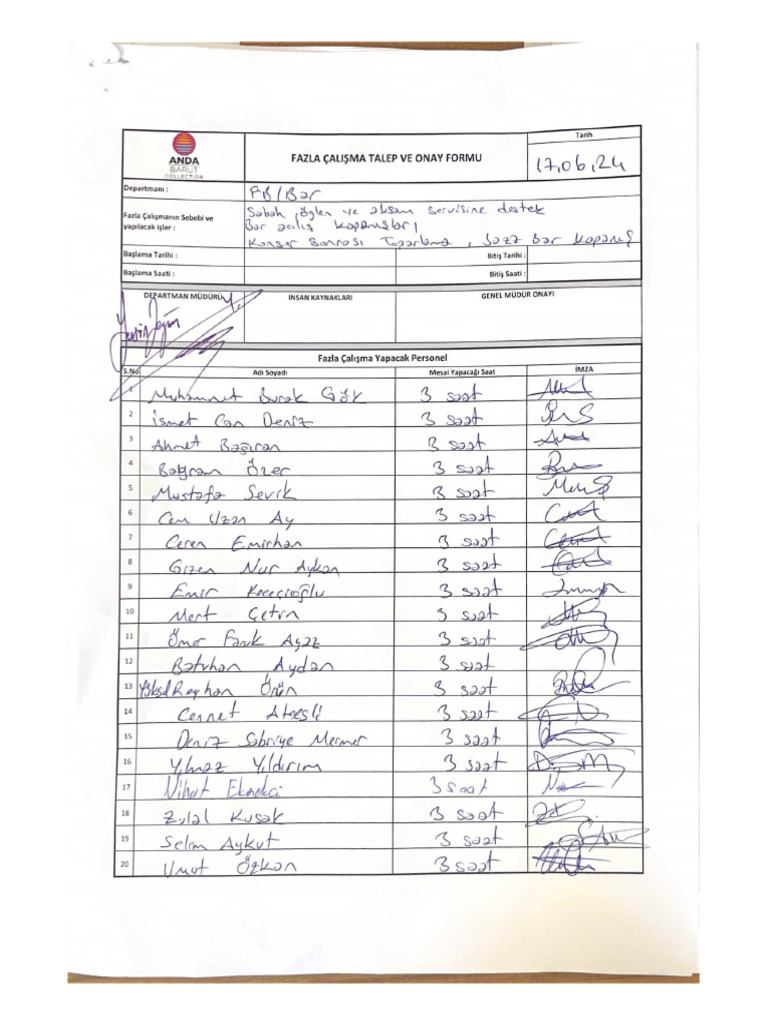 ANDA
BARUT
COLLECTION
FAZLA ÇALIŞMA TALEP VE ONAY FORMU
Tarih
17.06.24
Departmanı : FB/Bar
Fazla Çalışmanın Sebebi ve
yapılacak işler :
Sabah, öğlen ve akşam servisine destek
Bar açılış kapanışları,
Konser Sonrası Toparlama, Jazz bar kapanış
Başlama Tarihi : Bitiş Tarihi :
Başlama Saati : Bitiş Saati :
DEPARTMAN MÜDÜRÜ İNSAN KAYNAKLARI GENEL MÜDÜR ONAYI
Fazla Çalışma Yapacak Personel
S.No Adı Soyadı Mesai Yapacağı Saat İMZA
1 Muhammet Burak Gök 3 saat
2 İsmet Can Deniz 3 saat
3 Ahmet Bağıran 3 saat
4 Bayram Özer 3 saat
5 Mustafa Sevik 3 saat
6 Cem Uzan Ay 3 saat
7 Ceren Emirhan 3 saat
8 Gizen Nur Aykan 3 saat
9 Emir Keçecioğlu 3 saat
10 Mert Çetin 3 saat
11 Ömer Faruk Ayaz 3 saat
12 Batuhan Aydan 3 saat
13 Reyhan Örün 3 saat
14 Cennet Ateşli 3 saat
15 Deniz Sabriye Mermer 3 saat
16 Yılmaz Yıldırım 3 saat
17 Nihat Ekmekci 3 saat
18 Zylal Kuşak 3 saat
19 Selim Aykut 3 saat
20 Umut Özkan 3 saat